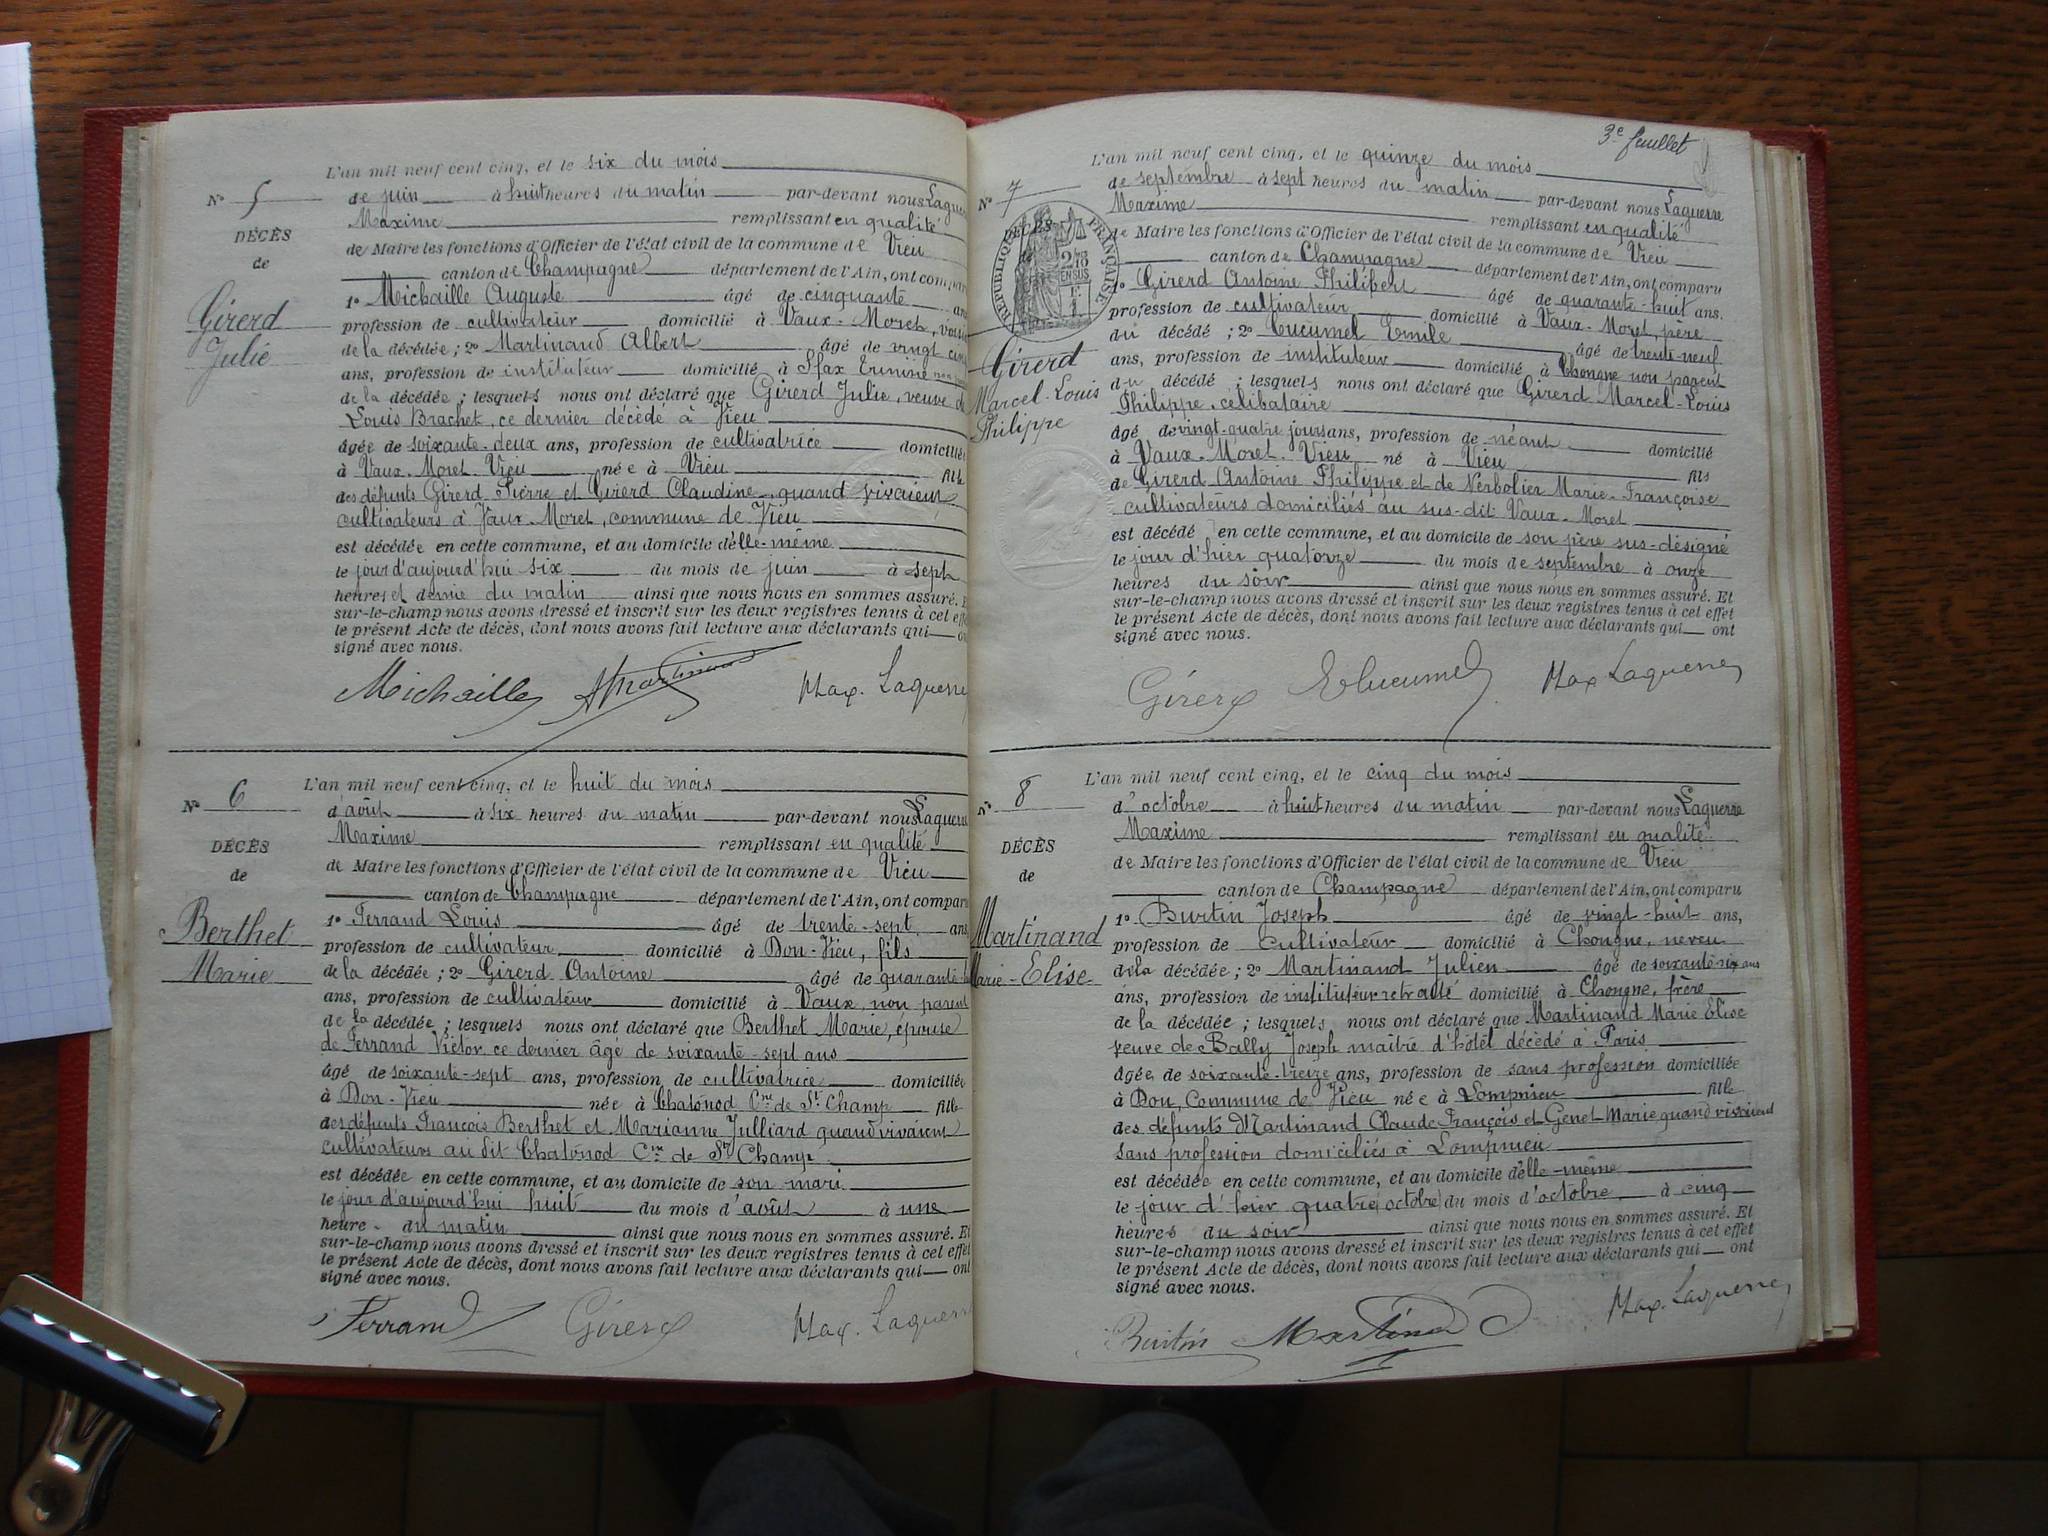 L'an mil neuf cent cinq, et le six du mois
N° 5 de juin à huit heures du matin par-devant nous
Maxime remplissant en qualité
DÉCÈS de Maire les fonctions d'Officier de l'état civil de la commune de Vieu
de canton de Champagne département de l'Ain, ont
Girerd 1° Michaille Auguste âgé de cinquante
Julie profession de cultivateur domicilié à Vaux-Moret,
de la décédée ; 2° Martinand Albert âgé de vingt
ans, profession de instituteur domicilié à Sfax
de la décédée ; lesquels nous ont déclaré que Girerd Julie, veuve
Louis Brachet, ce dernier décédé à Vieu
âgée de soixante-deux ans, profession de cultivatrice domiciliée
à Vaux-Moret Vieu née à Vieu fille
des défunts Girerd Pierre et Girerd Claudine, quand vivaient
cultivateurs à Vaux-Moret, commune de Vieu
est décédée en cette commune, et au domicile d'elle-même
le jour d'aujourd'hui six du mois de juin à sept
heures et demie du matin ainsi que nous nous en sommes assuré.
sur-le-champ nous avons dressé et inscrit sur les deux registres tenus à cet
le présent Acte de décès, dont nous avons fait lecture aux déclarants qui
signé avec nous.
Michaille Martinand Max. Laguerre
L'an mil neuf cent cinq, et le huit du mois
N° 6 d'août à six heures du matin par-devant nous
Maxime remplissant en qualité
DÉCÈS de Maire les fonctions d'Officier de l'état civil de la commune de Vieu
de canton de Champagne département de l'Ain, ont comparu
Berthet 1° Ferrand Louis âgé de trente-sept ans,
profession de cultivateur domicilié à Don-Vieu, fils
Marie de la décédée ; 2° Girerd Antoine âgé de quarante
ans, profession de cultivateur domicilié à Vaux, non parent
de la décédée ; lesquels nous ont déclaré que Berthet Marie, épouse
de Ferrand Victor, ce dernier âgé de soixante-sept ans
âgé de soixante-sept ans, profession de cultivatrice domiciliée
à Don-Vieu née à Chatonod Cne de St Champ fille
des défunts François Berthet et Marianne Julliard quand vivaient
cultivateurs au dit Chatonod Cne de St Champ
est décédée en cette commune, et au domicile de son mari
le jour d'aujourd'hui huit du mois d'août à une
heure du matin ainsi que nous nous en sommes assuré. Et
sur-le-champ nous avons dressé et inscrit sur les deux registres tenus à cet effet
le présent Acte de décès, dont nous avons fait lecture aux déclarants qui ont
signé avec nous.
Ferrand Girerd Max. Laguerre
3e feuillet
L'an mil neuf cent cinq, et le quinze du mois
N° 7 de septembre à sept heures du matin par-devant nous Laguerre
Maxime remplissant en qualité
DÉCÈS de Maire les fonctions d'Officier de l'état civil de la commune de Vieu
RÉPUBLIQUE FRANÇAISE
canton de Champagne département de l'Ain, ont comparu
1° Girerd Antoine Philibert âgé de quarante-huit ans.
profession de cultivateur domicilié à Vaux-Moret, père
du décédé ; 2° Cucumel Emile âgé de trente-neuf
Girerd ans, profession de instituteur domicilié à Chongne non parent
Marcel-Louis du décédé ; lesquels nous ont déclaré que Girerd Marcel-Louis
Philippe Philippe, célibataire
âgé de vingt-quatre jours ans, profession de néant domicilié
à Vaux-Moret Vieu né à Vieu fils
de Girerd Antoine Philippe et de Nerbolier Marie-Françoise
cultivateurs domiciliés au sus-dit Vaux-Moret
est décédé en cette commune, et au domicile de son père sus-désigné
le jour d'hier quatorze du mois de septembre à onze
heures du soir ainsi que nous nous en sommes assuré. Et
sur-le-champ nous avons dressé et inscrit sur les deux registres tenus à cet effet
le présent Acte de décès, dont nous avons fait lecture aux déclarants qui ont
signé avec nous.
Girerd ECucumel Max Laguerre
L'an mil neuf cent cinq, et le cinq du mois
N° 8 d'octobre à huit heures du matin par-devant nous Laguerre
Maxime remplissant en qualité
DÉCÈS de Maire les fonctions d'Officier de l'état civil de la commune de Vieu
de canton de Champagne département de l'Ain, ont comparu
1° Burtin Joseph âgé de vingt-huit ans,
Martinand profession de cultivateur domicilié à Chongne, neveu
Marie-Elise de la décédée ; 2° Martinand Julien âgé de soixante-six ans
ans, profession de instituteur retraité domicilié à Chongne, frère
de la décédée ; lesquels nous ont déclaré que Martinand Marie Elise
veuve de Bally Joseph maître d'hôtel décédé à Paris
âgée de soixante-treize ans, profession de sans profession domiciliée
à Don, Commune de Vieu née à Lompnieu fille
des défunts Martinand Claude François et Genet Marie quand vivaient
sans profession domiciliés à Lompnieu
est décédée en cette commune, et au domicile d'elle-même
le jour d'hier quatre (octobre) du mois d'octobre à cinq
heures du soir ainsi que nous nous en sommes assuré. Et
sur-le-champ nous avons dressé et inscrit sur les deux registres tenus à cet effet
le présent Acte de décès, dont nous avons fait lecture aux déclarants qui ont
signé avec nous.
Burtin Martinand Max. Laguerre